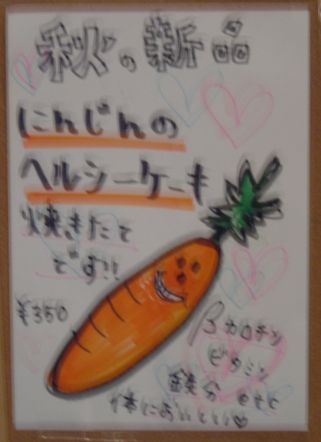 秋の新品
にんじんの
ヘルシーケーキ
焼きたて
です!!
¥350
βカロチン
ビタミン
鉄分 etc
体においしい♡